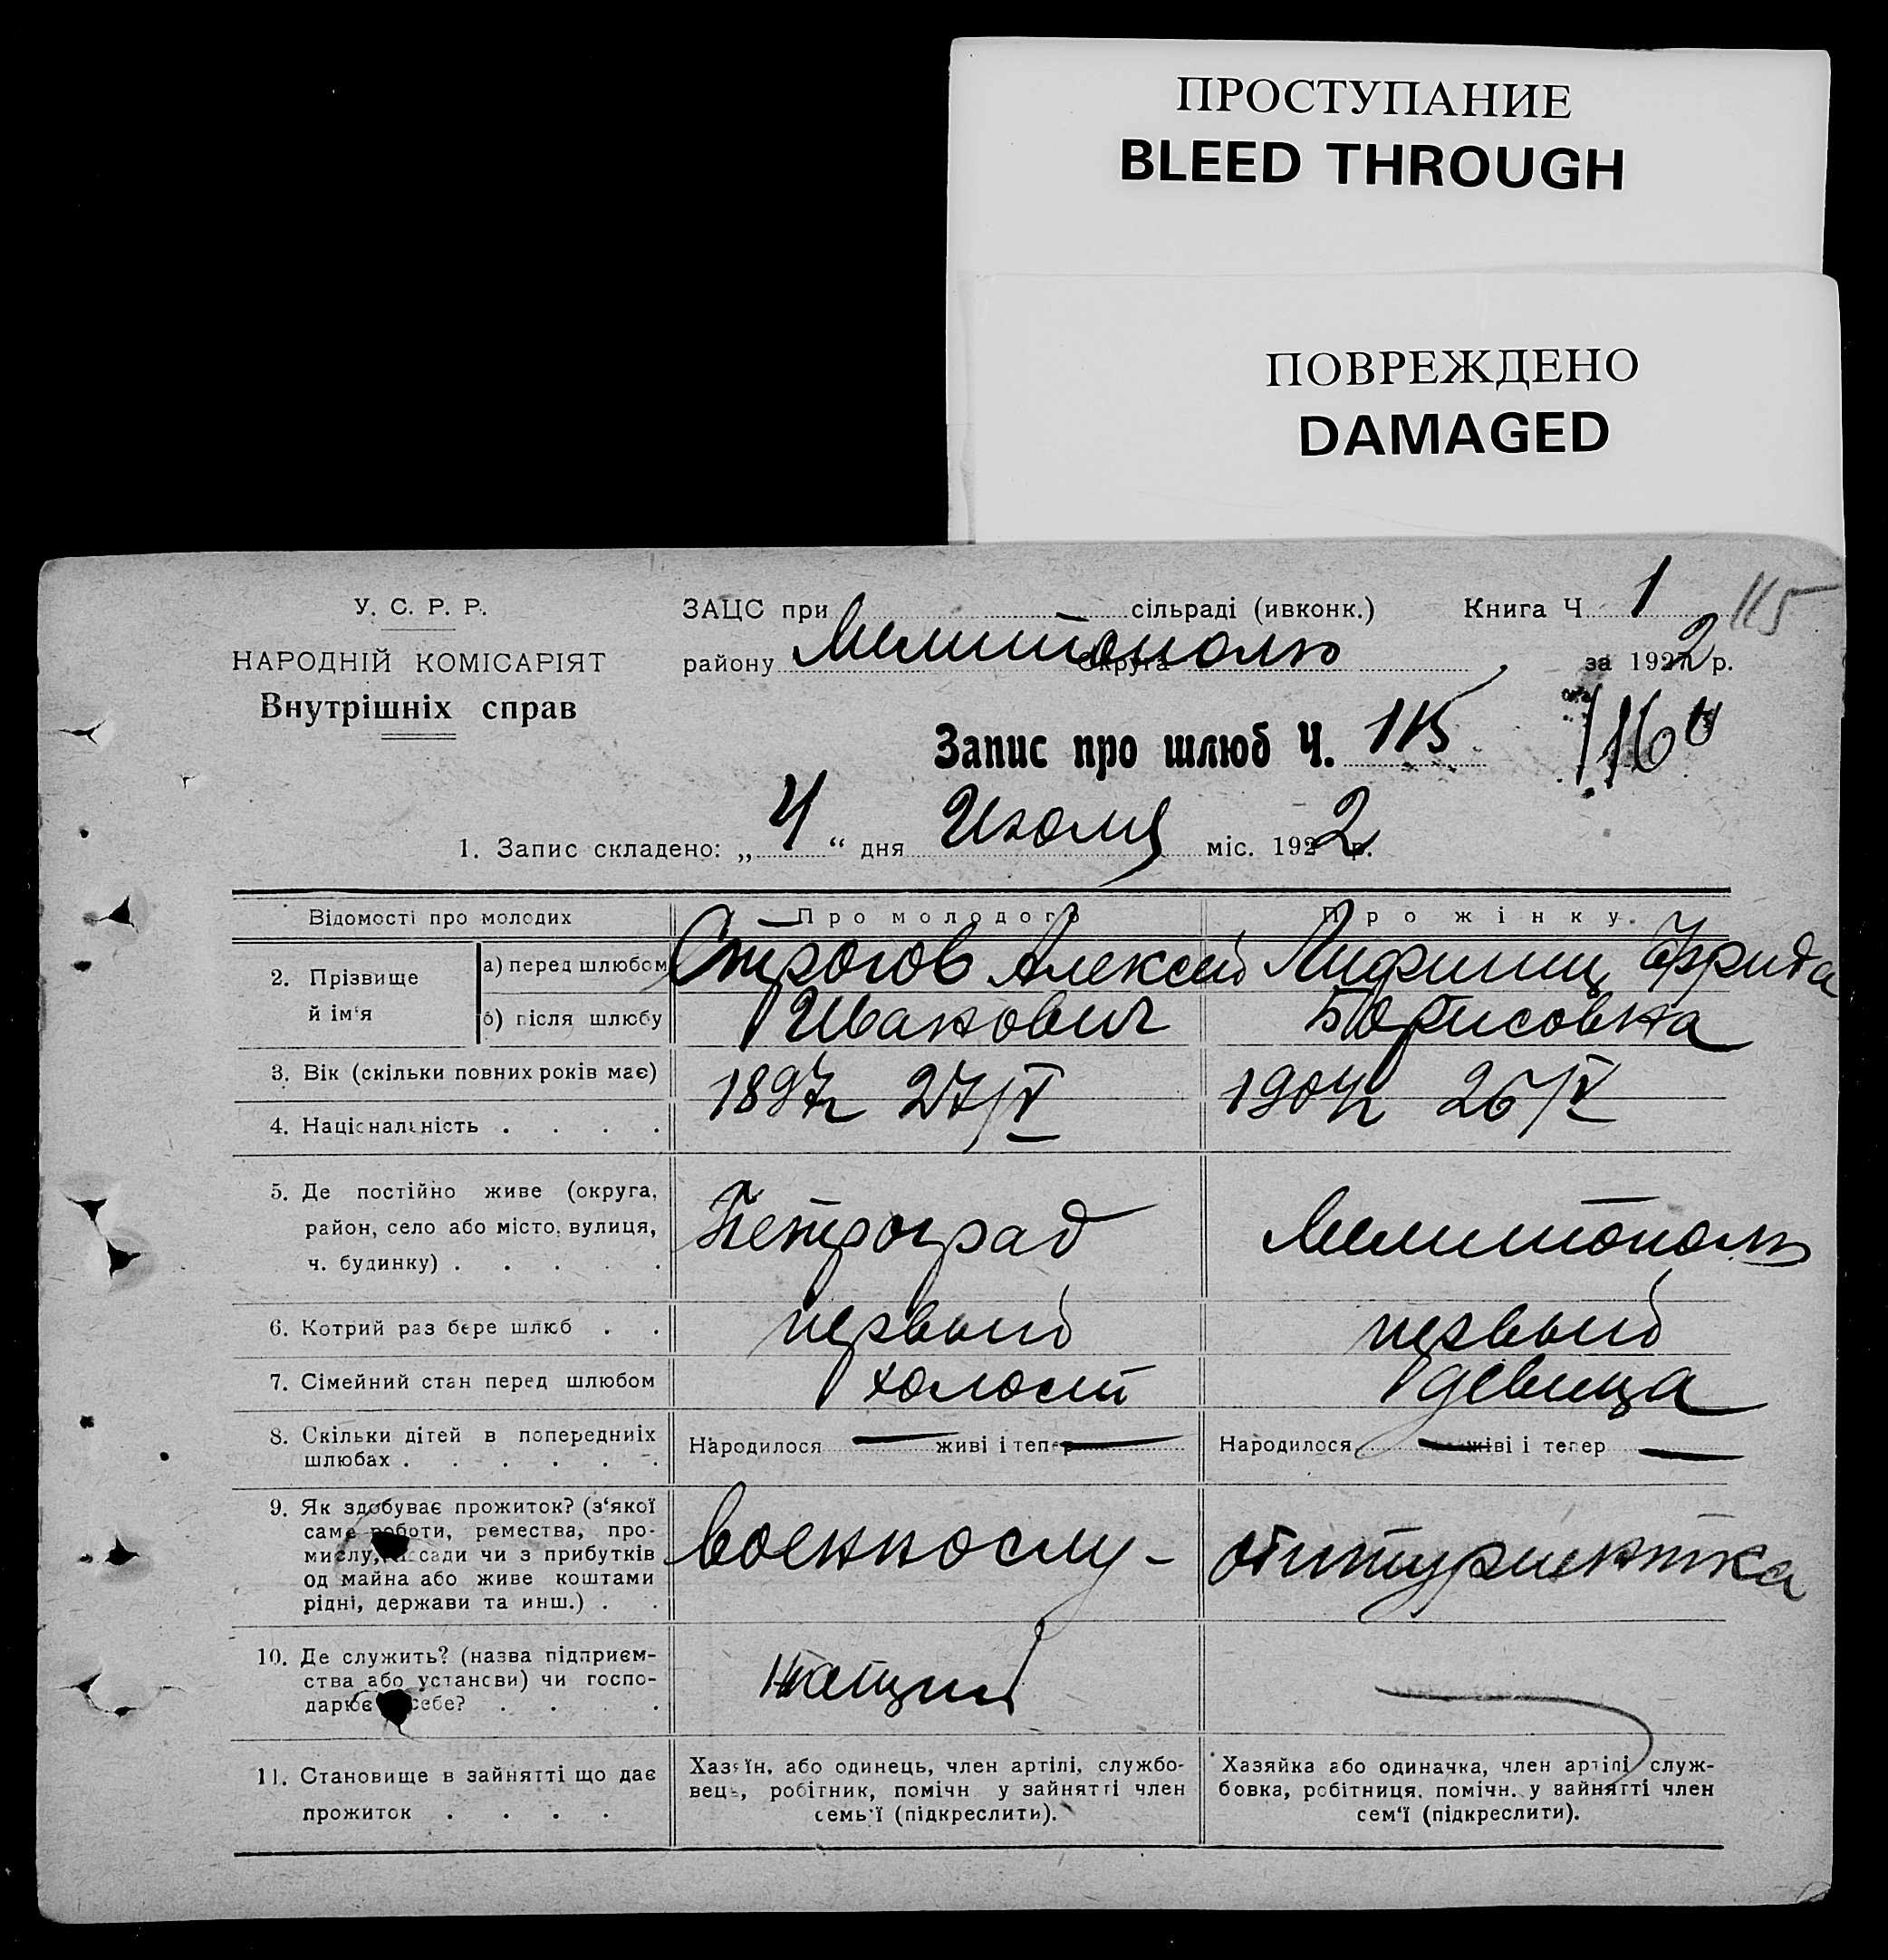 ПРОСТУПАНИЕ
BLEED THROUGH
ПОВРЕЖДЕНО
DAMAGED
У. С. Р. Р.
НАРОДНІЙ КОМІСАРІЯТ
Внутрішніх справ
ЗАЦС при сільраді (ивконк.) Книга Ч 1 115
району Мелитополь Округа за 1922 р.
Запис про шлюб Ч. 115 116
1. Запис складено: „ 4 “ дня Июля міс. 1922 р.
Відомості про молодих Про молодого Про жінку.
2. Прізвище й ім'я а) перед шлюбом Строгов Алексей Лифшиц Фрида
б) після шлюбу Иванович Борисовна
3. Вік (скільки повних років має) 1897 г 27/V 1904 г 26/V
4. Національність . . . .
5. Де постійно живе (округа,
район, село або місто, вулиця, Петроград Мелитополь
ч. будинку) . . . . .
6. Котрий раз бере шлюб . . первый первый
7. Сімейний стан перед шлюбом холост девица
8. Скільки дітей в попередніх Народилося — живі і тепер — Народилося — живі і тепер —
шлюбах . . . . . .
9. Як здобуває прожиток? (з'якої
саме роботи, ремества, про-
мислу, посади чи з прибутків военнослу- абитуриентка
од майна або живе коштами
рідні, держави та инш.) . .
10. Де служить? (назва підприєм-
ства або установи) чи госпо- жащий —
дарює себе? . . . .
11. Становище в зайнятті що дає Хазяїн, або одинець, член артілі, службо- Хазяйка або одиначка, член артілі служ-
прожиток . . . . вець, робітник, помічн у зайнятті член бовка, робітниця, помічн. у зайнятті член
семь'ї (підкреслити). сем'ї (підкреслити).